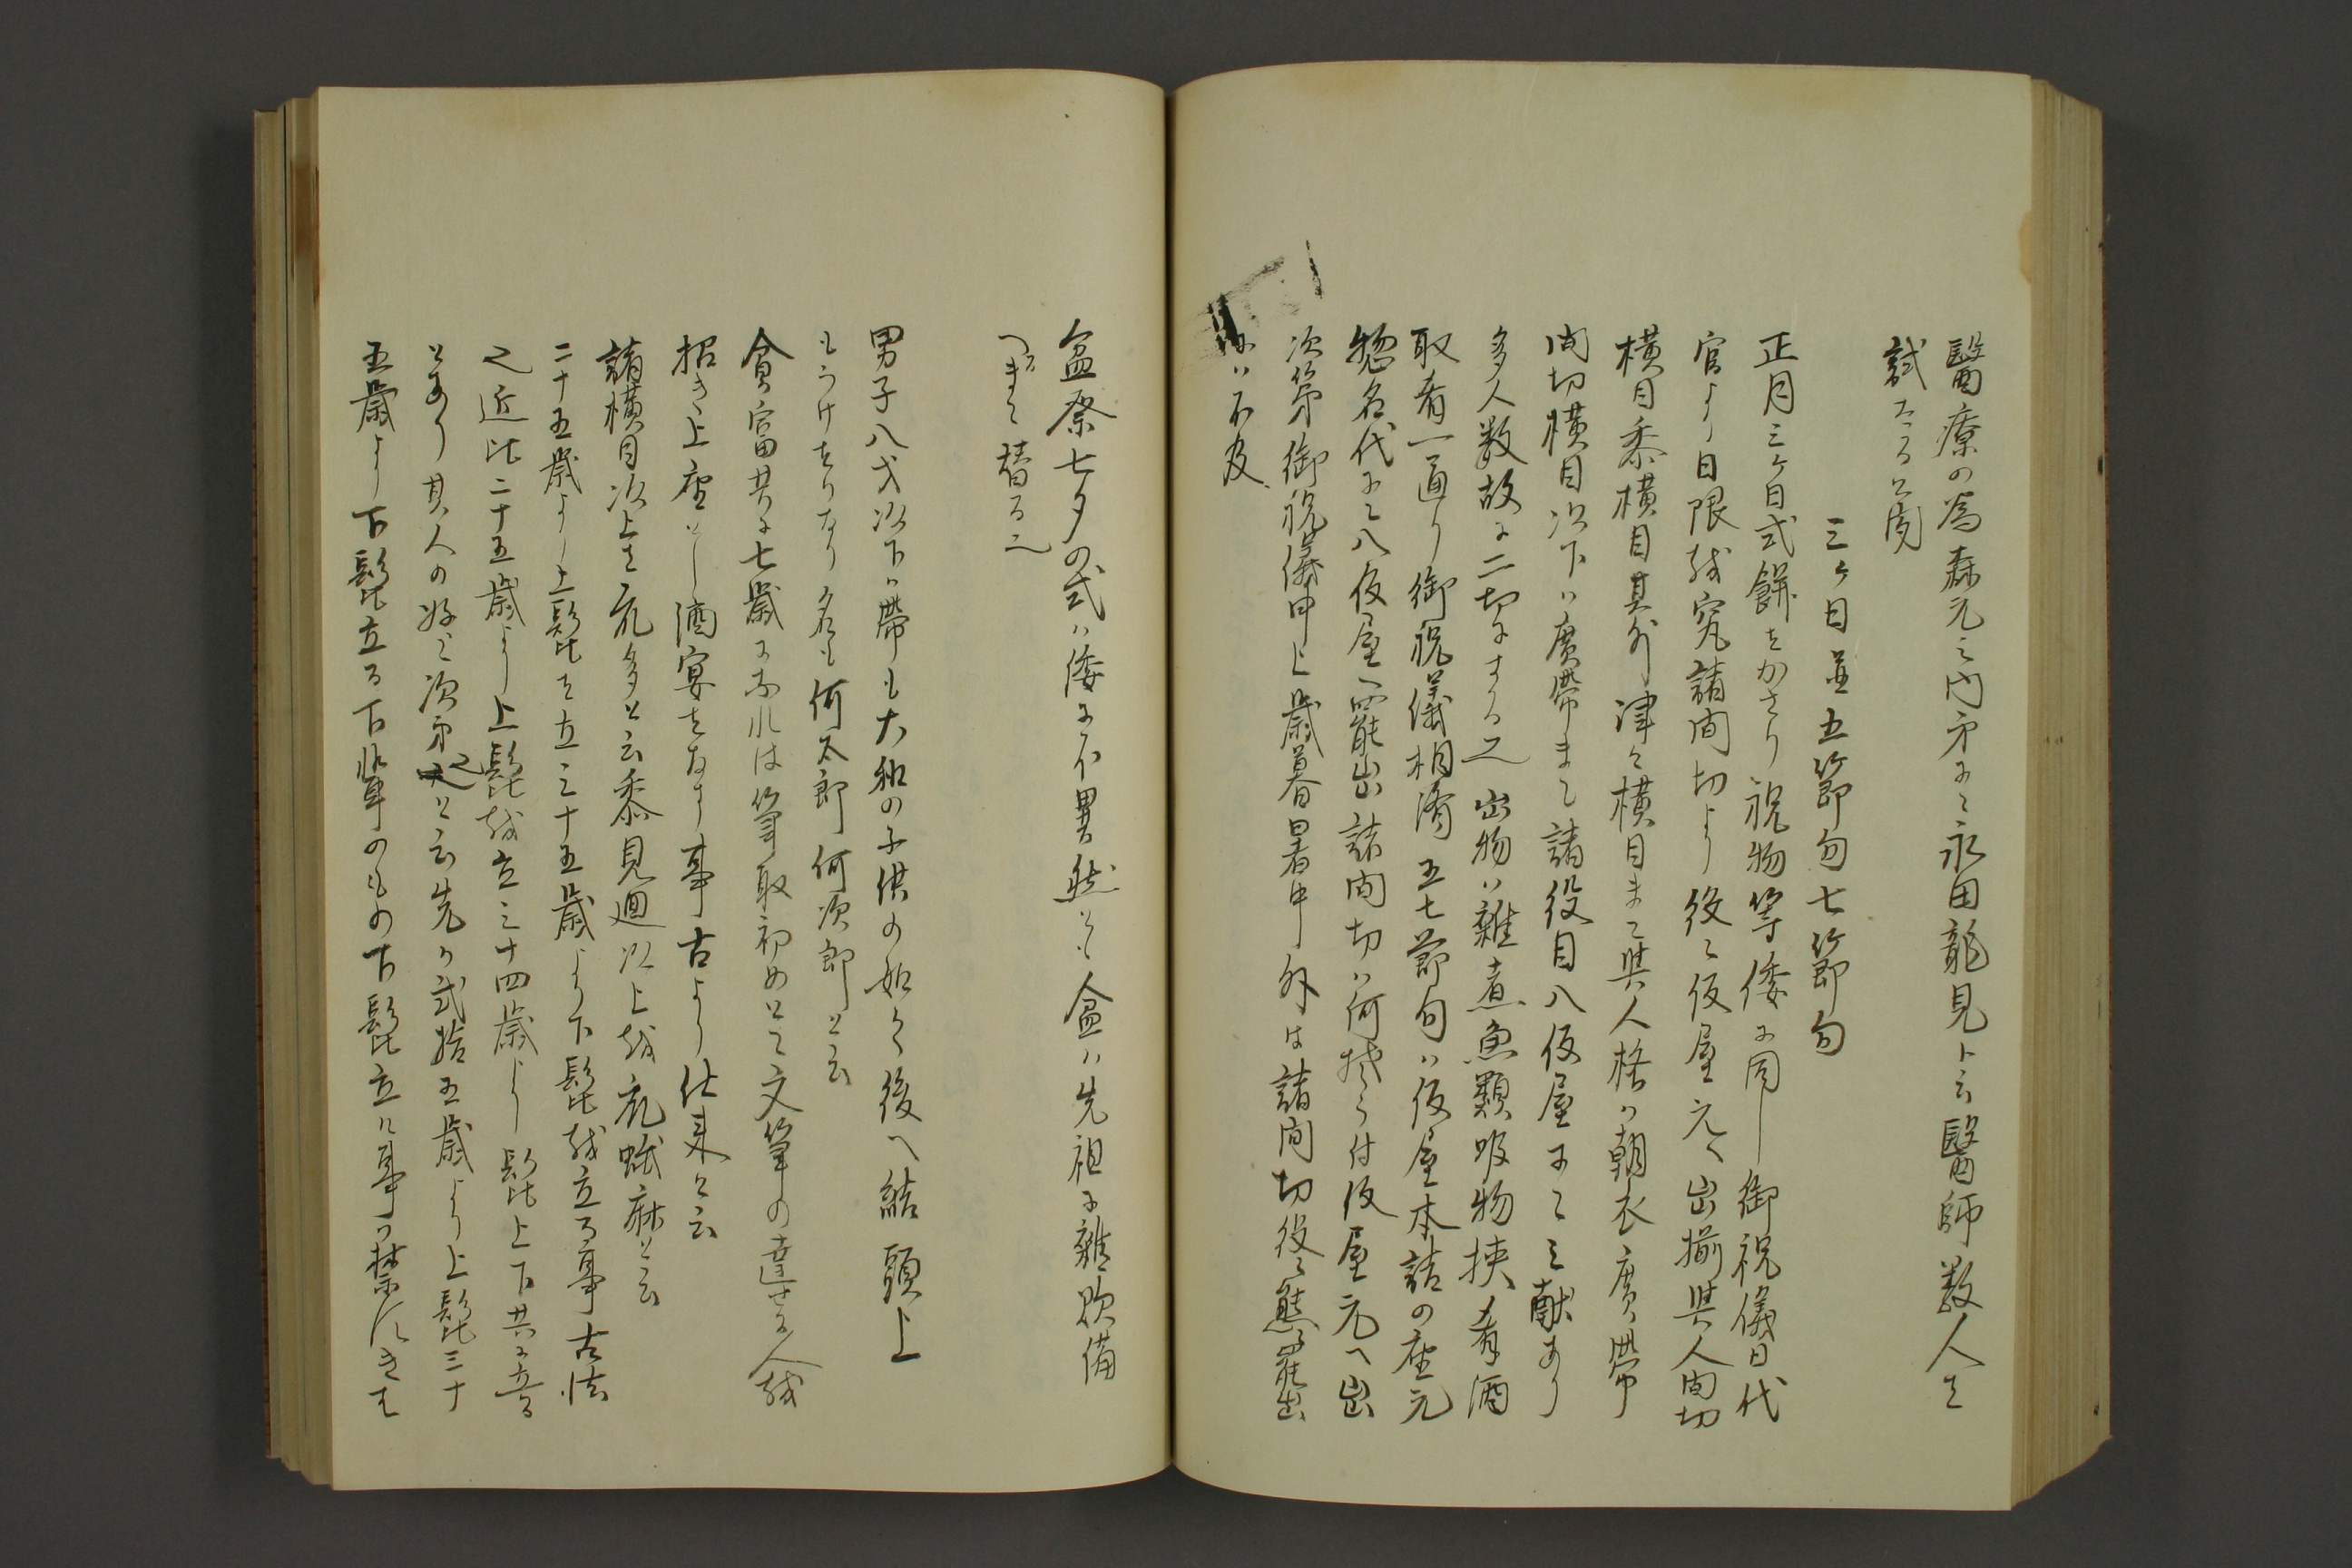 醫療の為森元之内弟にて永田龍見ト云醫師数人を
試たると聞
三ヶ日並五節句七節句
正月三ヶ日式餅をかさり祝物等倭に同し御祝儀日代
官より日限を究諸間切より役々仮屋元へ出揃與人間切
横目黍横目其外津々横目まて與人格の朝衣廣帯
間切横目次下ハ廣帯まて諸役目ハ仮屋にて三献あり
多人数故に二切にする也出物ハ雑煮魚類吸物挟肴酒
取肴一通り御祝儀相済五七節句ハ仮屋本詰の座元
惣名代にてハ仮屋へ罷出諸間切ハ何れも仮屋元へ出
次第御祝儀申上歳暮暑中外は諸間切役々態々罷出
ハ不及
盆祭七夕の式ハ倭に不異然とも盆ハ先祖に雑飲備
へ替る也
男子八才以下ハ帯も大和の子供の如く後へ結頭上
もうけをりなり名も何太郎何次郎と云
貧富共に七歳になれは筆取初めとて文筆の達せる人を
招き上座とし酒宴をなす事古より仕来と云
諸横目次上を親多と云黍見廻以上を親蛾麻と云
二十五歳より上髭を立三十五歳より下髭を立る事古法
也近比二十五歳より上髭を立三十四歳より髭上下共に立る
もあり其人の好と次第也と云先ハ弐拾五歳より上髭三十
五歳より下髭立る下輩のもの下髭立ル事ハ禁